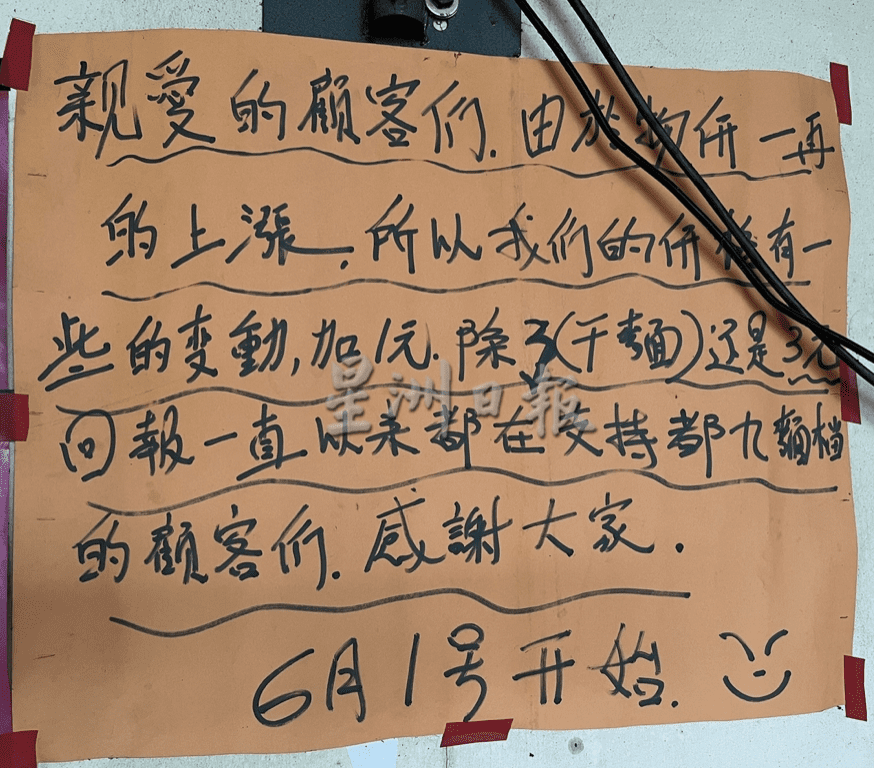 親爱的顧客们.由於物併一再
的上漲.所以我们的併格有一
些的变動,加1元.除了(干麵)还是3元
回報一直以来都在支持都九麵档
的顧客们.感謝大家.
6月1号开始.
星洲日報